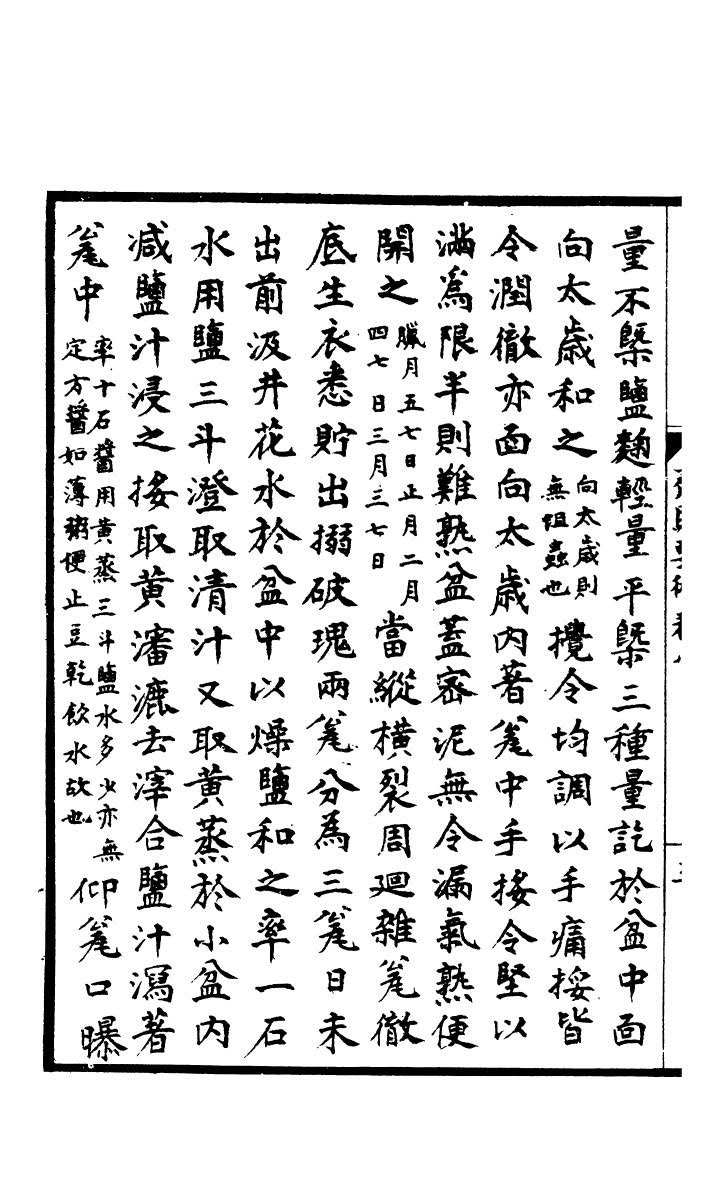 量不槩鹽麴輕量平槩三種量訖於盆中面
向太歲和之向太歲則無蛆蟲也攪令均調以手痛挼皆
令潤徹亦面向太歲内著瓮中手挼令堅以
滿為限半則難熟盆蓋密泥無令漏氣熟便
開之臘月五七日正月二月四七日三月三七日當縱横裂周迴雜瓮徹
底生衣悉貯出搦破瑰兩瓮分為三瓮日未
出前汲井花水於盆中以燥鹽和之率一石
水用鹽三斗澄取清汁又取黄蒸於小盆内
减鹽汁浸之挼取黄瀋漉去滓合鹽汁瀉著
瓮中率十石醬用黄蒸三斗鹽水多少亦無定方醬如薄粥便止豆乾飲水故也仰瓮口曝